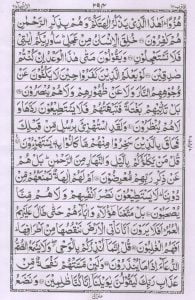 ۲۹۴
هُزُوًا ؕ اَهٰذَا الَّذِیْ یَذْكُرُ اٰلِهَتَكُمْ ۚ وَهُمْ بِذِكْرِ الرَّحْمٰنِ
هُمْ كٰفِرُوْنَ خُلِقَ الْاِنْسَانُ مِنْ عَجَلٍ ؕ سَاُورِیْكُمْ اٰیٰتِیْ
فَلَا تَسْتَعْجِلُوْنِ وَیَقُوْلُوْنَ مَتٰی هٰذَا الْوَعْدُ اِنْ كُنْتُمْ
صٰدِقِیْنَ لَوْ یَعْلَمُ الَّذِیْنَ كَفَرُوْا حِیْنَ لَا یَكُفُّوْنَ عَنْ
وُّجُوْهِهِمُ النَّارَ وَلَا عَنْ ظُهُوْرِهِمْ وَلَا هُمْ یُنْصَرُوْنَ
بَلْ تَاْتِیْهِمْ بَغْتَةً فَتَبْهَتُهُمْ فَلَا یَسْتَطِیْعُوْنَ رَدَّهَا وَ
لَا هُمْ یُنْظَرُوْنَ وَلَقَدِ اسْتُهْزِئَ بِرُسُلٍ مِّنْ قَبْلِكَ
فَحَاقَ بِالَّذِیْنَ سَخِرُوْا مِنْهُمْ مَّا كَانُوْا بِهٖ یَسْتَهْزِءُوْنَ
قُلْ مَنْ یَّكْلَؤُكُمْ بِالَّیْلِ وَالنَّهَارِ مِنَ الرَّحْمٰنِ ؕ بَلْ هُمْ
عَنْ ذِكْرِ رَبِّهِمْ مُّعْرِضُوْنَ اَمْ لَهُمْ اٰلِهَةٌ تَمْنَعُهُمْ مِّنْ
دُوْنِنَا ؕ لَا یَسْتَطِیْعُوْنَ نَصْرَ اَنْفُسِهِمْ وَلَا هُمْ مِّنَّا
یُصْحَبُوْنَ بَلْ مَتَّعْنَا هٰۤؤُلَآءِ وَاٰبَآءَهُمْ حَتّٰی طَالَ عَلَیْهِمُ
الْعُمُرُ ؕ اَفَلَا یَرَوْنَ اَنَّا نَاْتِی الْاَرْضَ نَنْقُصُهَا مِنْ اَطْرَافِهَا ؕ
اَفَهُمُ الْغٰلِبُوْنَ قُلْ اِنَّمَاۤ اُنْذِرُكُمْ بِالْوَحْیِ ۖ وَلَا یَسْمَعُ الصُّمُّ
الدُّعَآءَ اِذَا مَا یُنْذَرُوْنَ وَلَئِنْ مَّسَّتْهُمْ نَفْحَةٌ مِّنْ
عَذَابِ رَبِّكَ لَیَقُوْلُنَّ یٰوَیْلَنَاۤ اِنَّا كُنَّا ظٰلِمِیْنَ وَنَضَعُ